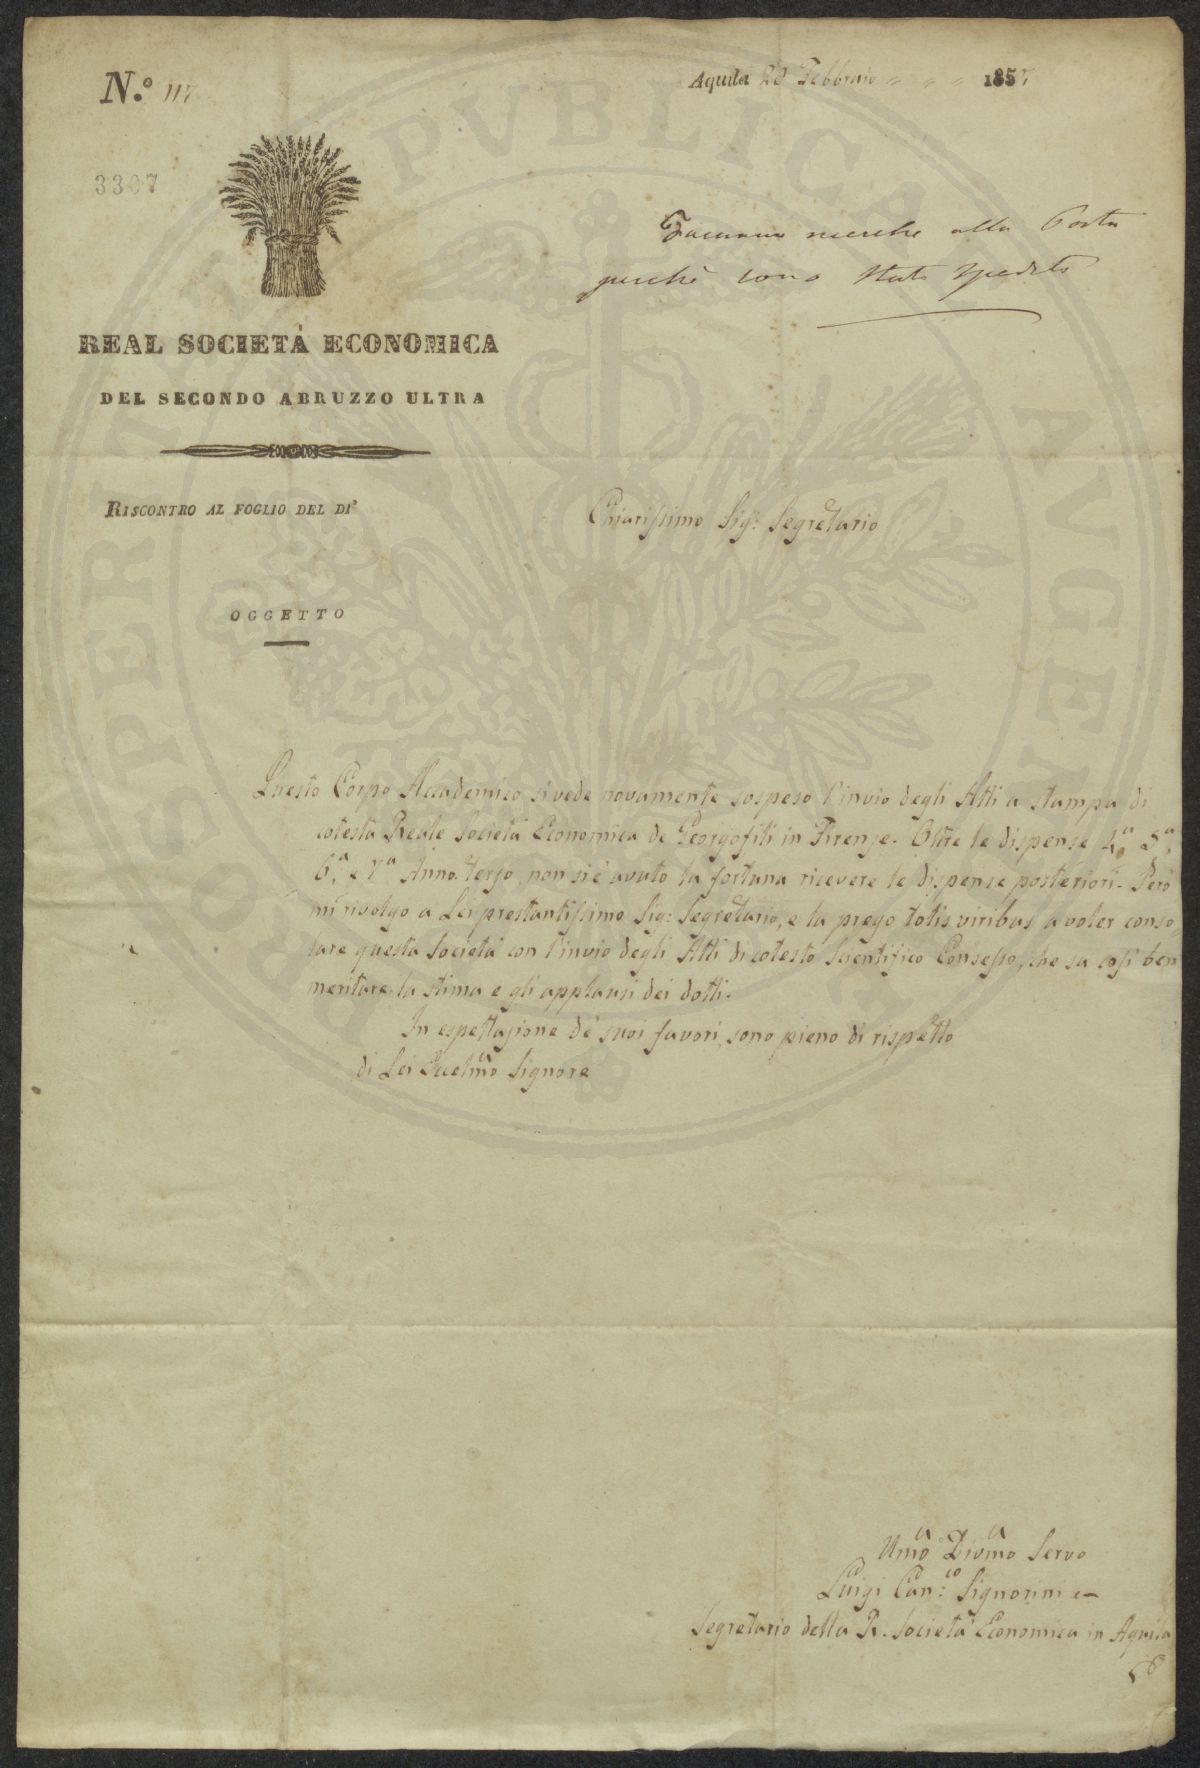 N.º 117
Aquila 20 Febbraio 1857
3307
Facciano ricerche alla Posta
perché sono stati spediti
REAL SOCIETÀ ECONOMICA
DEL SECONDO ABRUZZO ULTRA
RISCONTRO AL FOGLIO DEL DI'
Chiarissimo Sig.r Segretario
OGGETTO
Questo Corpo Accademico si vede novamente sospeso l'invio degli Atti a stampa di
cotesta Reale Società Economica de Georgofili in Firenze. Oltre le dispense 4.a 5.a,
6.a e 7.a Anno terzo, non si è avuto la fortuna ricevere le dispense posteriori. Però
mi rivolgo a Lei prestantissimo Sig.r Segretario, e la prego totis viribus a voler conso-
lare questa Società con l'invio degli Atti di cotesto Scientifico Consesso, che sa così ben
meritare la stima e gli applausi dei dotti.
In espettazione de' suoi favori, sono pieno di rispetto
di Lei Eccelmo Signore
Umo Divmo Servo
Luigi Can.co Signorini
Segretario della R. Società Economica in Aquila
PROSPERITATI PVBLICAE AVGENDAE